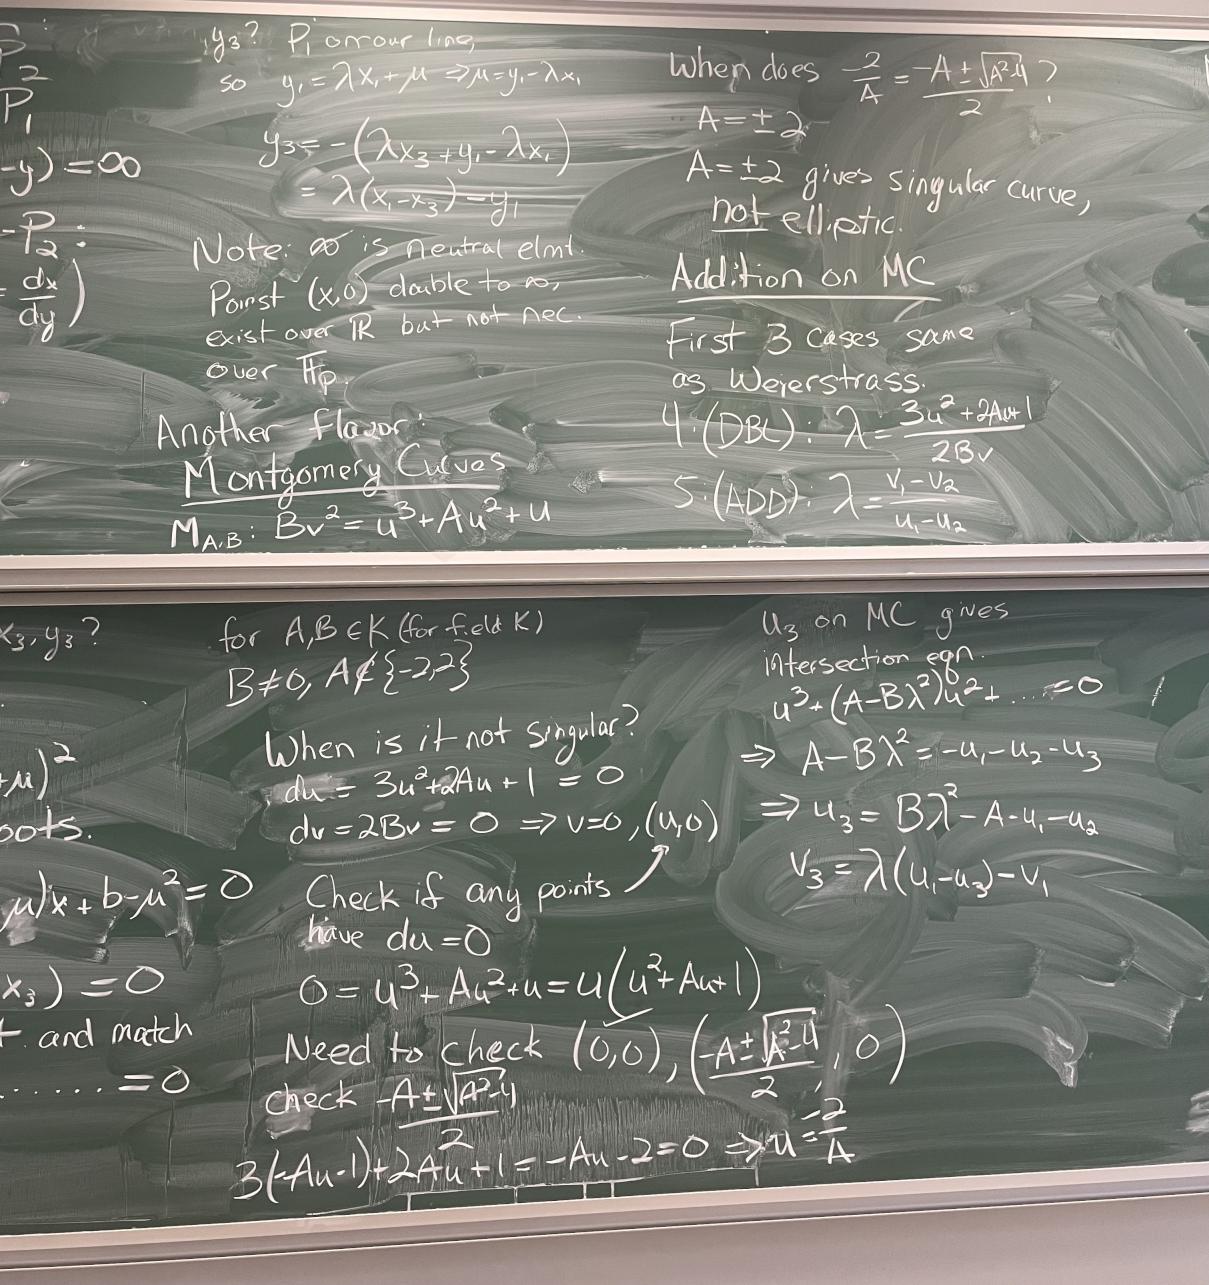 P2
P1
-y) = ∞
-P2 :
= dx/dy )
y3? P1 on our line,
so y1 = λx1 + μ ⇒ μ = y1 - λx1
y3 = -(λx3 + y1 - λx1)
= λ(x1 - x3) - y1
Note: ∞ is neutral elmt.
Poinst (x,0) double to ∞,
exist over ℝ but not nec.
over 𝔽p.
Another flavor:
Montgomery Curves
M_A,B : Bv² = u³ + Au² + u
When does -2/A = (-A ± √(A²-4))/2 ?
A = ±2
A = ±2 gives singular curve,
not elliptic.
Addition on MC
First 3 cases same
as Weierstrass.
4: (DBL): λ = (3u² + 2Au + 1)/(2Bv)
5: (ADD): λ = (v1 - v2)/(u1 - u2)
x3, y3?
+μ)²
oots.
μ)x + b - μ² = 0
x3) = 0
t and match
...... = 0
for A,B ∈ K (for field K)
B ≠ 0, A ∉ {-2,2}
When is it not singular?
du = 3u² + 2Au + 1 = 0
dv = 2Bv = 0 ⇒ v = 0, (u,0)
Check if any points
have du = 0
0 = u³ + Au² + u = u(u² + Au + 1)
Need to check (0,0), ((-A ± √(A²-4))/2, 0)
check (-A ± √(A²-4))/2
3(-Au-1) + 2Au + 1 = -Au - 2 = 0 ⇒ u = -2/A
u3 on MC gives
intersection eqn.
u³ + (A - Bλ²)u² + .... = 0
⇒ A - Bλ² = -u1 - u2 - u3
⇒ u3 = Bλ² - A - u1 - u2
v3 = λ(u1 - u3) - v1